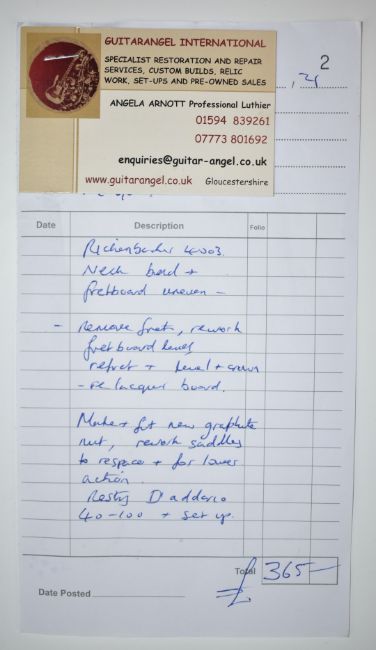 GUITARANGEL INTERNATIONAL
SPECIALIST RESTORATION AND REPAIR
SERVICES, CUSTOM BUILDS, RELIC
WORK, SET-UPS AND PRE-OWNED SALES
ANGELA ARNOTT Professional Luthier
01594 839261
07773 801692
enquiries@guitar-angel.co.uk
www.guitarangel.co.uk Gloucestershire
2
Date Description Folio
Rickenbacker 4003.
Neck bend +
fretboard uneven -
- Remove frets, rework
fretboard level
refret + level + crown
- relacquer board.
Make + fit new graphite
nut, rework saddles
to respace + for lower
action.
Restring D'addario
40-100 + set up.
Total £ 365-
Date Posted